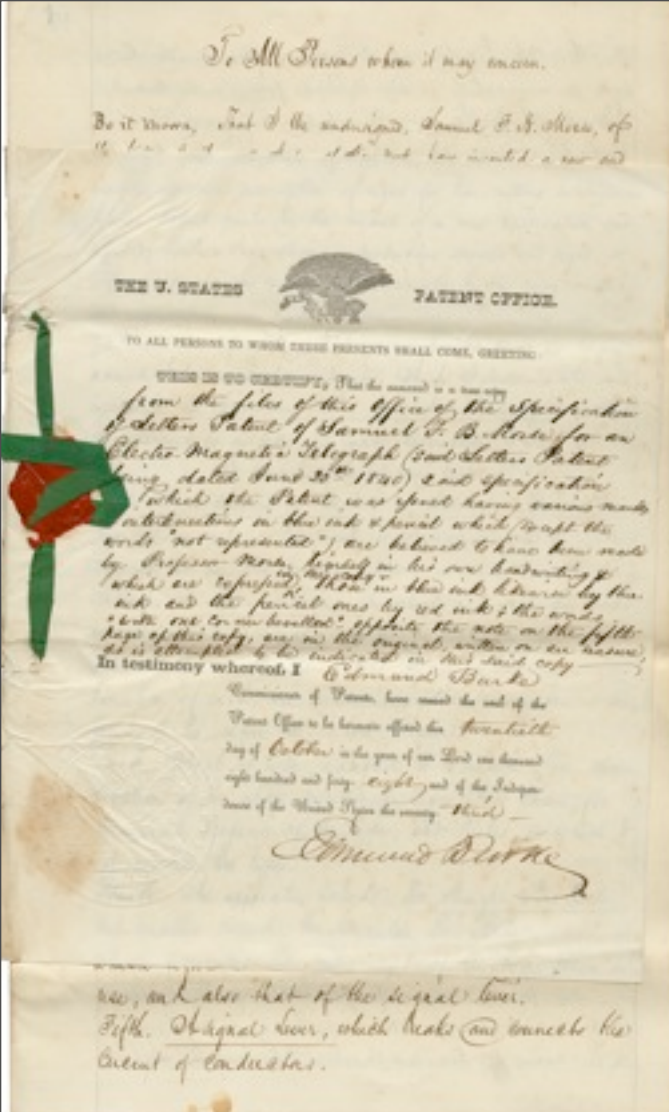 To All Persons whom it may concern.
Be it known, That I the undersigned, Samuel F. B. Morse, of
invented a new and
THE U. STATES PATENT OFFICE.
TO ALL PERSONS TO WHOM THESE PRESENTS SHALL COME, GREETING:
THIS IS TO CERTIFY, That the annexed is a true copy
from the files of this Office of the Specification
of Letters Patent of Samuel F. B. Morse for an
Electro Magnetic Telegraph (said Letters Patent
being dated June 20th 1840) said specification
which the Patent was issued having various marks
interlineations in blue ink & pencil which (except the
words "not represented") are believed to have been made
by Professor Morse himself in his own handwriting &
which are expressed, those in blue ink likewise by blue
ink and the pencil ones by red ink & the words
"with one corner bevelled" opposite the note on the fifth
page of this copy, are in the original written on an erasure,
as is attempted to be indicated in this said copy
In testimony whereof, I Edmund Burke
Commissioner of Patents, have caused the seal of the
Patent Office to be hereunto affixed this twentieth
day of October in the year of our Lord one thousand
eight hundred and forty eight and of the Indepen-
dence of the United States the seventy third
Edmund Burke
use, and also that of the signal lever.
Fifth. A signal Lever, which breaks and connects the
circuit of conductors.